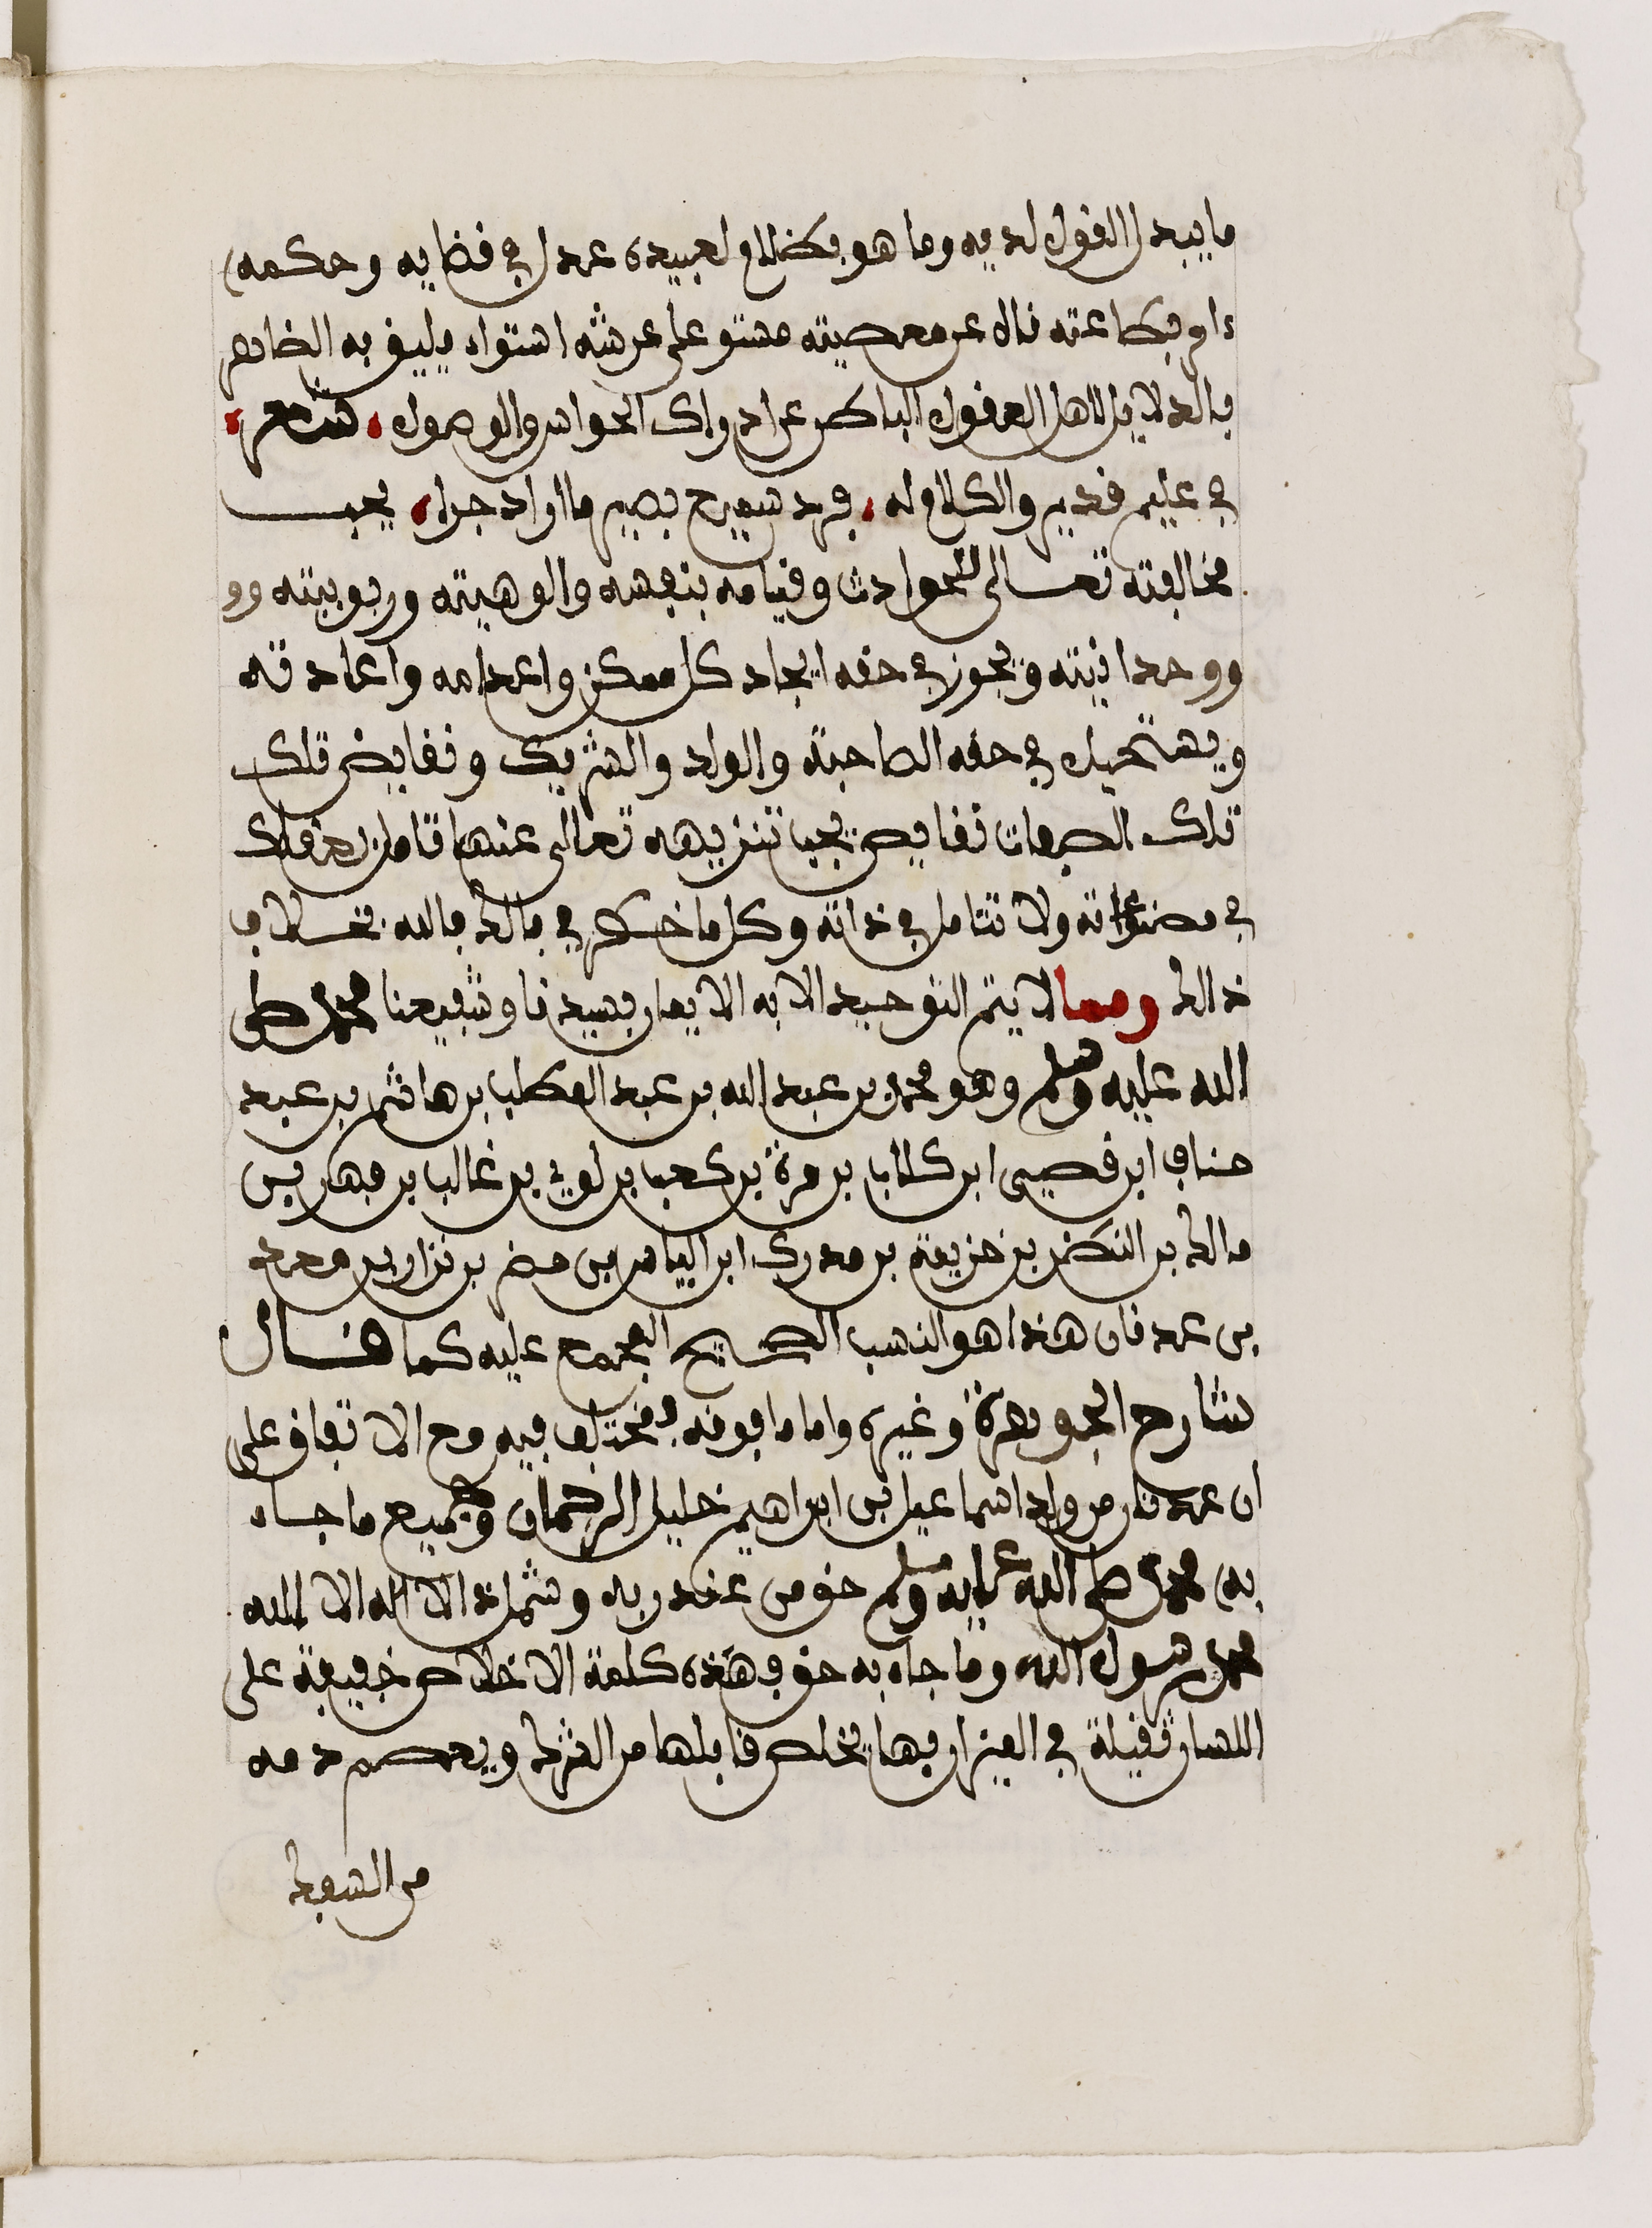 ما يبدل القول لديه وما هو بظلام لعبيده عدل في قضايه وحكمه
ءامر بطاعته ناه عن معصيته مستو على عرشه استواء يليق به الظاهر
بالدلايل لاهل العقول الباطن عن ادراك الحواس والوصول شعر
حي عليم قدير والكلام له فرد سميع بصير ما اراد جرا يجب
مخالفته تعالى للحوادث وقيامه بنفسه والوهيته وربوبيته وو
ووحدانيته ويجوز في حقه ايجاد كل ممكن واعدامه واعادته
ويستحيل في حقه الصاحبة والولد والشريك ونقايض تلك
تلك الصفات نقايص يجب تنزيهه تعالى عنها تامل بعقلك
في مصنوعاته ولا تتامل في ذاته وكل ما خطر في بالك فالله بخلاف
ذالك ومما لا يتم التوحيد الا به الايمان بسيدنا وشفيعنا محمد صلى
الله عليه وسلم وهو محمد بن عبد الله بن عبد المطلب بن هاشم بن عبد
مناف ابن قصيى ابن كلاب بن مرة بن كعب بن لوي بن غالب بن فهر بن
مالك بن النضر بن خزيمة بن مدركة ابن الياس بن مضر بن نزار بن معد
بن عدنان هذا هو النسب الصحيح المجمع عليه كما قال
شارح الجوهرة وغيره واما ما فوقه فمختلف فيه مع الاتفاق على
ان عدنان من ولد اسماعيل بن ابراهيم خليل الرحمان وجميع ما جاء
به محمد صلى الله عليه وسلم حق من عند ربه وشهادة الا اله الا الله
محمد رسول الله وما جاء به حق فهذه كلمة الاخلاص خفيفة على
اللسان ثقيلة في الميزان بها يخلص قايلها من الشرك ويعصم دمه
من السفك